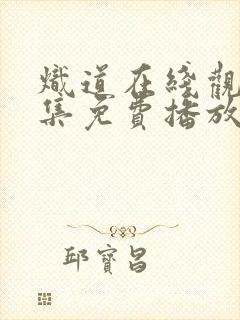 熾道在綫觀
集免費播放
邱寶昌